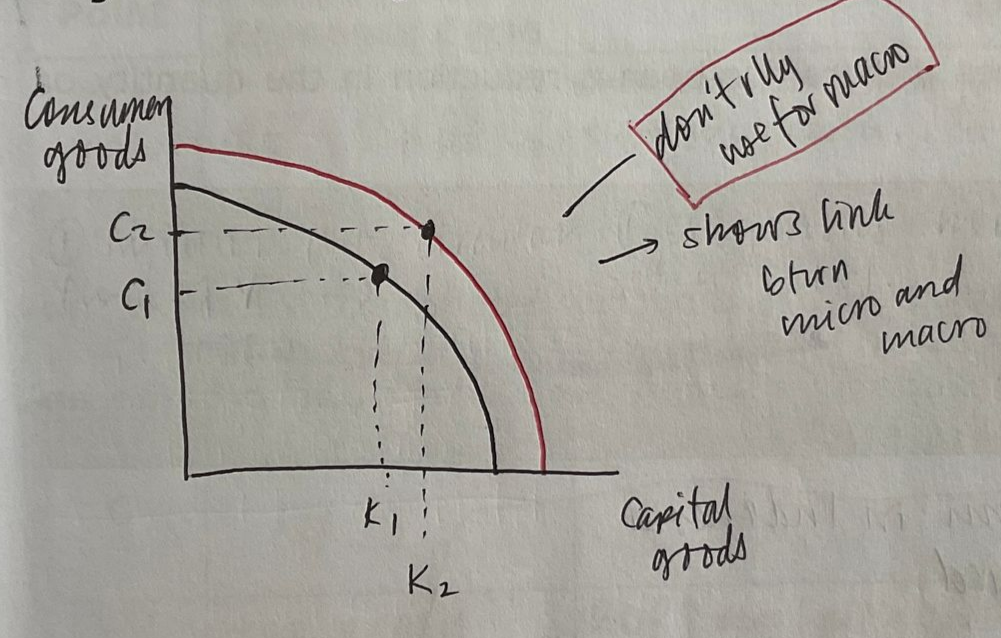 Consumer
goods
C2
C1
K1
K2
Capital
goods
don't rlly
use for macro
shows link
btwn
micro and
macro